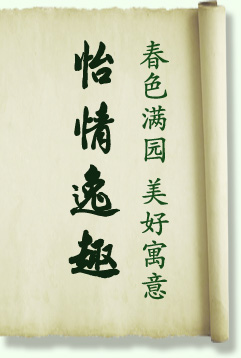 春色满园 美好寓意
怡情逸趣